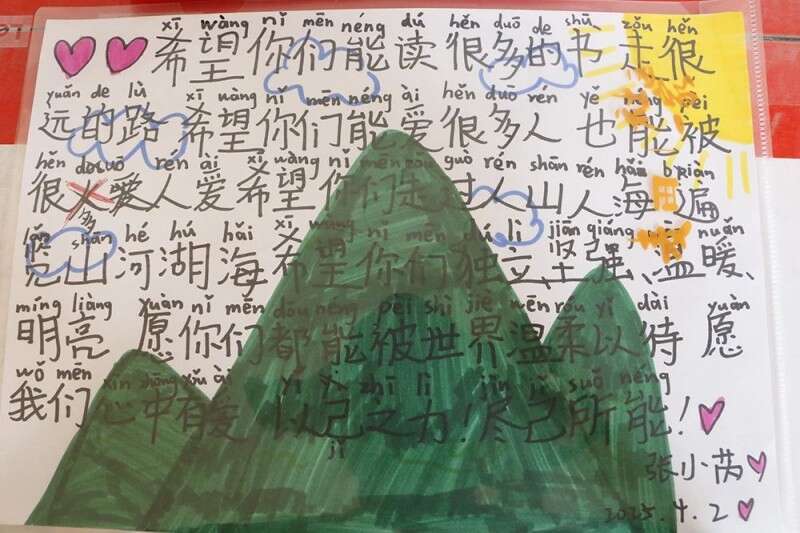 xī wàng nǐ mēn néng dú hěn duō de shū zǒu hěn
希望你们能读很多的书走很
yuǎn de lù xī wàng nǐ mēn néng ài hěn duō rén yě néng pei
远的路希望你们能爱很多人也能被
hěn duō rén ai xī wàng nǐ mēn zou guò rén shān rén hǎi biàn
很多人爱希望你们走过人山人海遍
lǎn shān hé hú hǎi xī wàng nǐ mēn dú lì jiān qiáng wēn nuǎn
览山河湖海希望你们独立、坚强、温暖、
míng liàng yuàn nǐ mēn dōu néng pèi shì jiè wēn róu yǐ dài yuàn
明亮 愿你们都能被世界温柔以待 愿
wǒ mēn xīn zhōng yǒu ài yǐ jǐ zhī lì jǐn jǐ suǒ néng
我们心中有爱 以己之力!尽己所能!
张小芮
2025.4.2